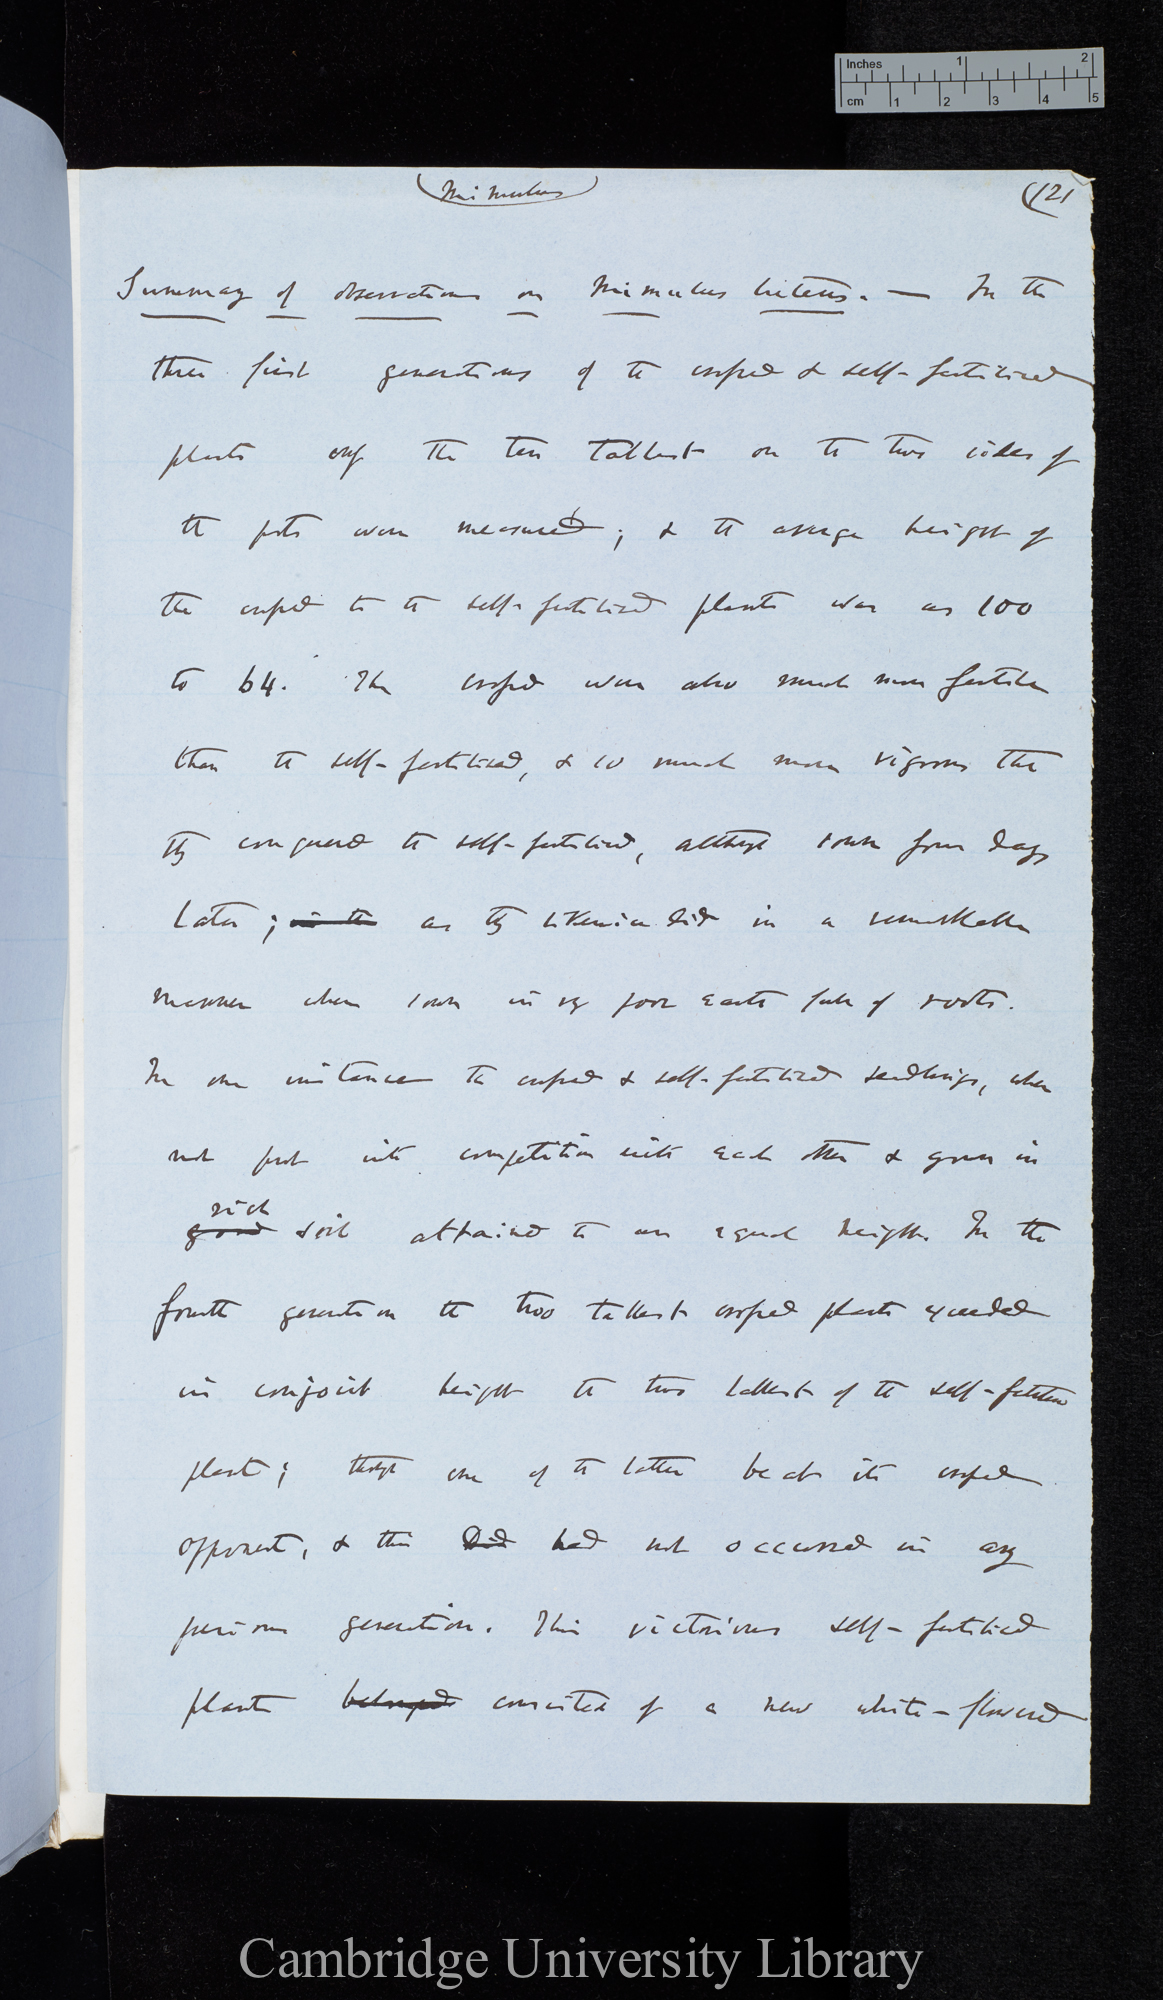 Inches 1 2
cm 1 2 3 4 5
(Mimulus)
(121
Summary of observations on Mimulus luteus. — In the
three first generations of the crossed & self-fertilised
plants only the ten tallest on the two sides of
the pots were measured; & the average height of
the crossed to the self-fertilised plants was as 100
to 64. The crossed were also much more fertile
than the self-fertilised, & so much more vigorous that
they conquered the self-fertilised, although sown four days
later; in the as they likewise did in a remarkable
manner when sown in very poor earth full of roots.
In one instance the crossed & self-fertilised seedlings, when
not put into competition with each other & grown in
rich
good soil attained to an equal height. In the
fourth generation the two tallest crossed plants exceeded
in conjoint height the two tallest of the self-fertilised
plants; though one of the latter beat its crossed
opponent, & this did had not occurred in any
previous generation. This victorious self-fertilised
plant belonged consisted of a new white-flowered
Cambridge University Library